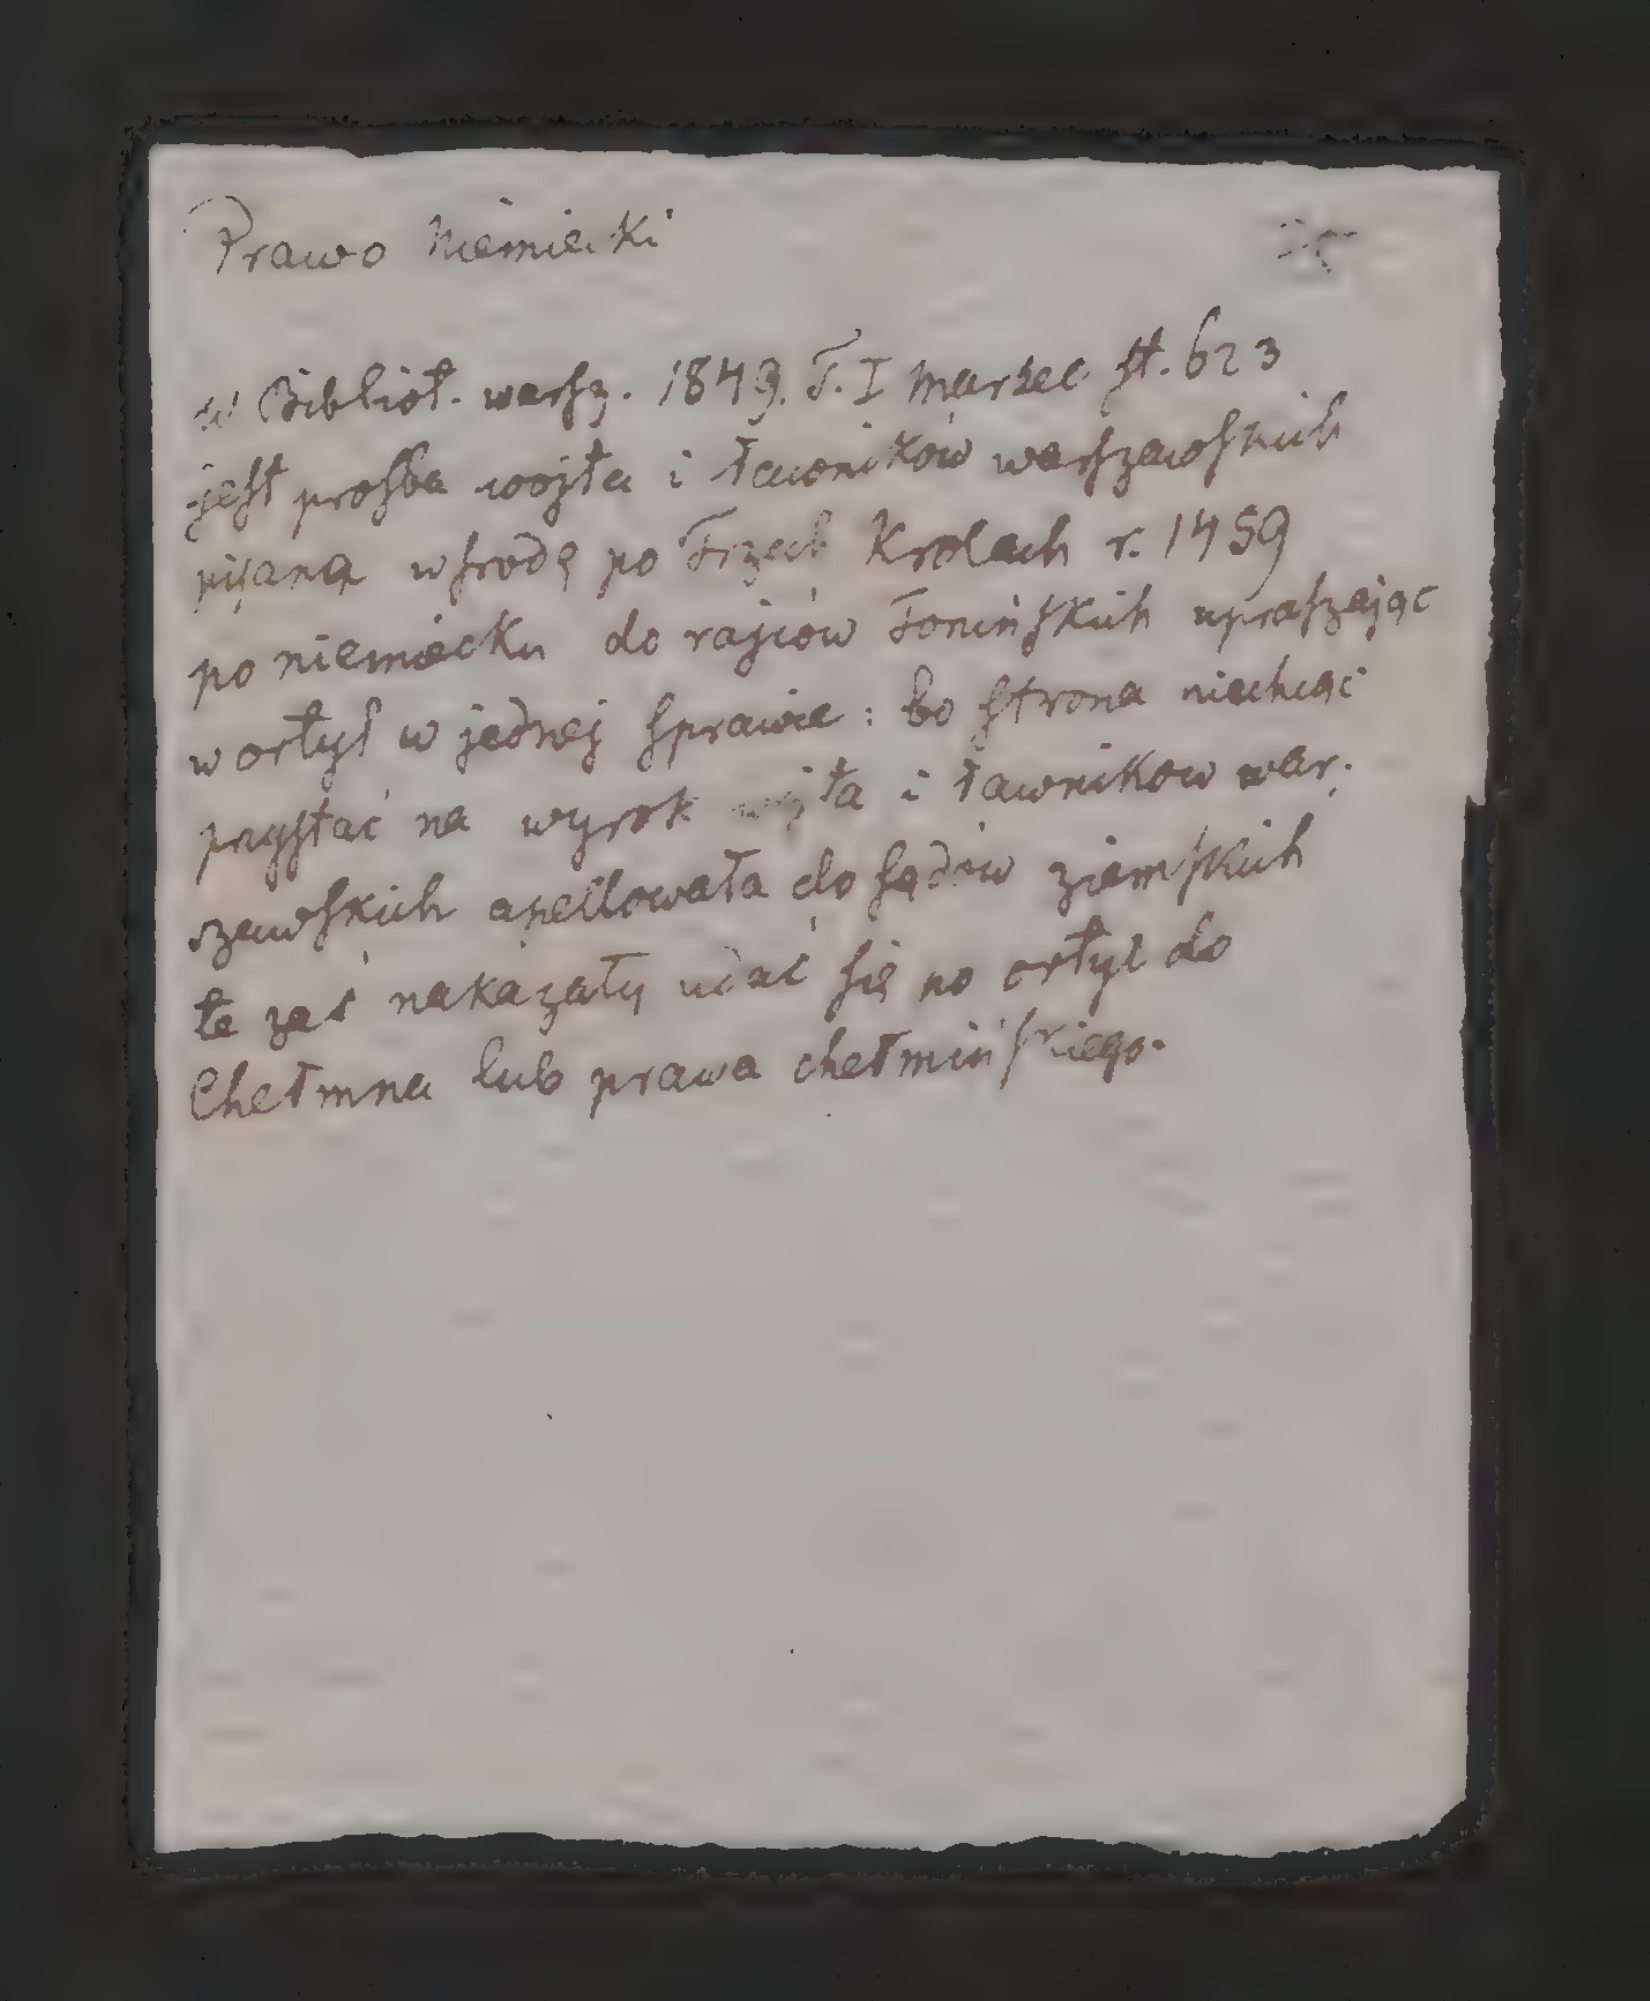 Prawo Niemiecki
w Bibliot. warsz. 1849. T. I Marzec st. 623
jest prosba wojta i ławników warszawskich
pisana w srodę po Trzech Krolach r. 1459
po niemiecku do rajców Toruńskich upraszając
w ortyl w jednej sprawie: bo strona niechcąc
przystać na wyrok wojta i ławnikow war.
szawskich apellowała do sądów ziemskich
te zaś nakazały udać się po ortyl do
Chełmna lub prawa chełmińskiego.